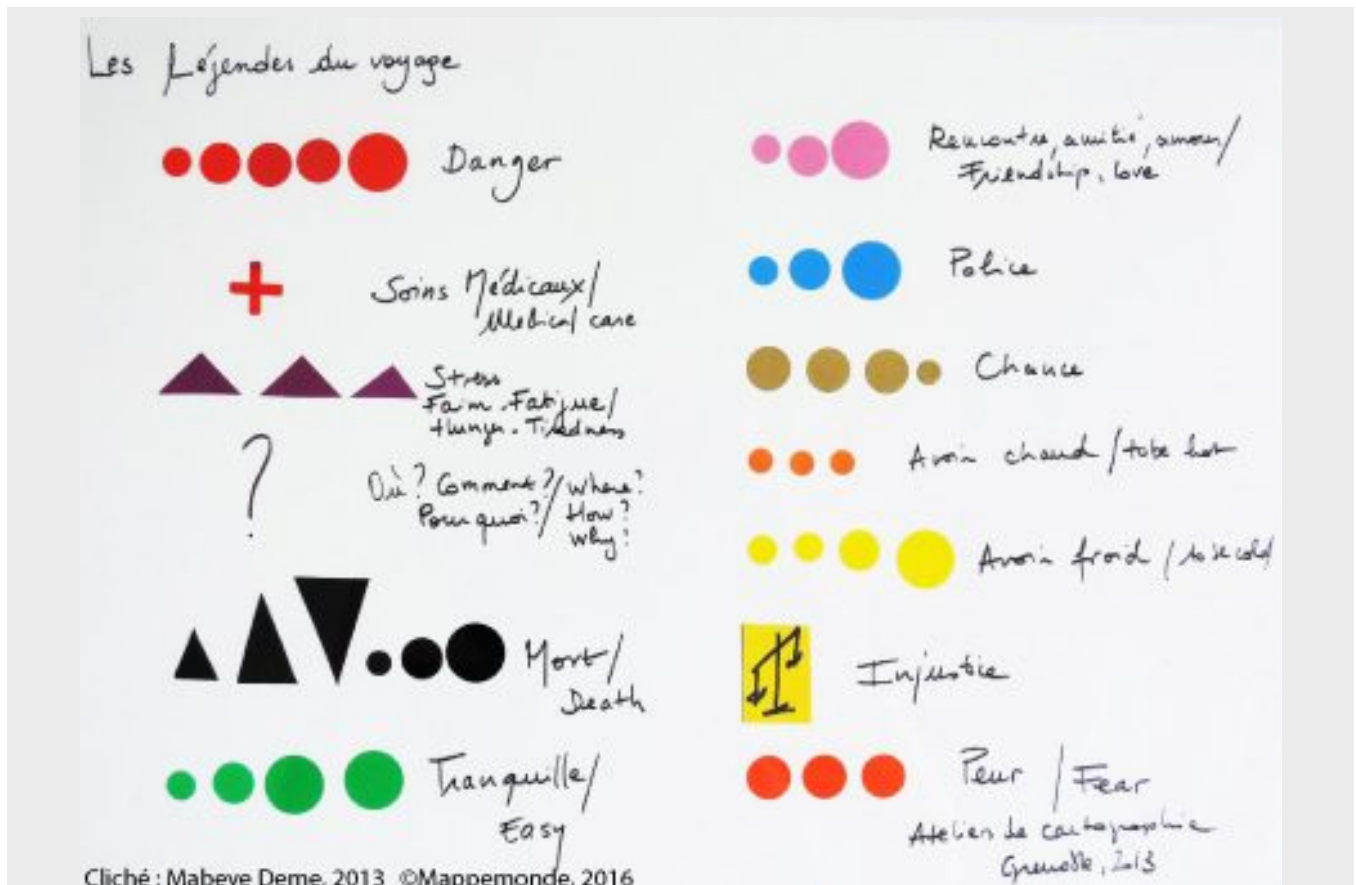 Les Légendes du voyage
Danger
Soins Médicaux/
Medical care
Stress
Faim . Fatigue/
Hunger . Tiredness
?
Où? Comment?/where?
Pourquoi?/How?
why?
Mort/
Death
Tranquille/
Easy
Rencontre, amitié, amour/
Friendship, love
Police
Chance
Avoir chaud/to be hot
Avoir froid / to be cold/
Injustice
Peur / Fear
Atelier de cartographie
Grenoble, 2013
Cliché : Mabeye Deme, 2013 ©Mappemonde, 2016